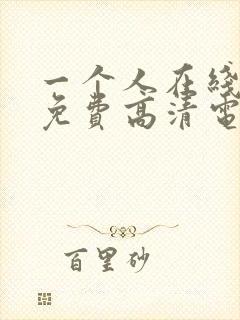 一个人在线
免费高清电
百里砂